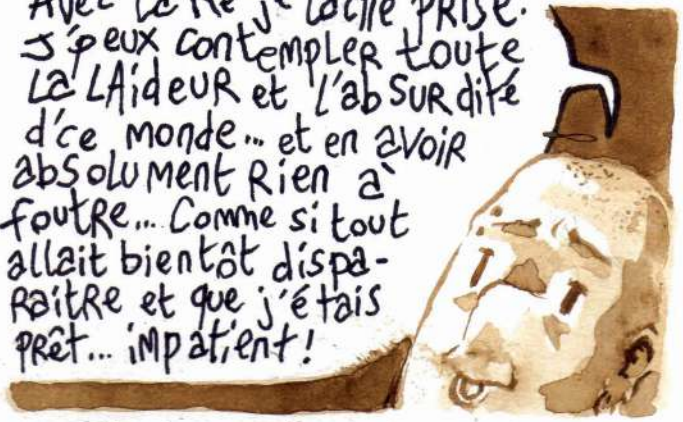 Avec la Ké je lâche PRISE.
J'peux contempler toute
la LAideur et l'absurdité
d'ce monde... et en avoir
absolument Rien à
foutre... Comme si tout
allait bientôt dispa-
raitre et que j'étais
prêt... impatient!